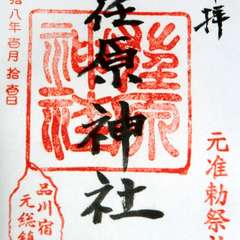 拝
元准勅祭社
荏原神社
荏原神社
品川宿
元総鎮
拾八年壱月拾壱日